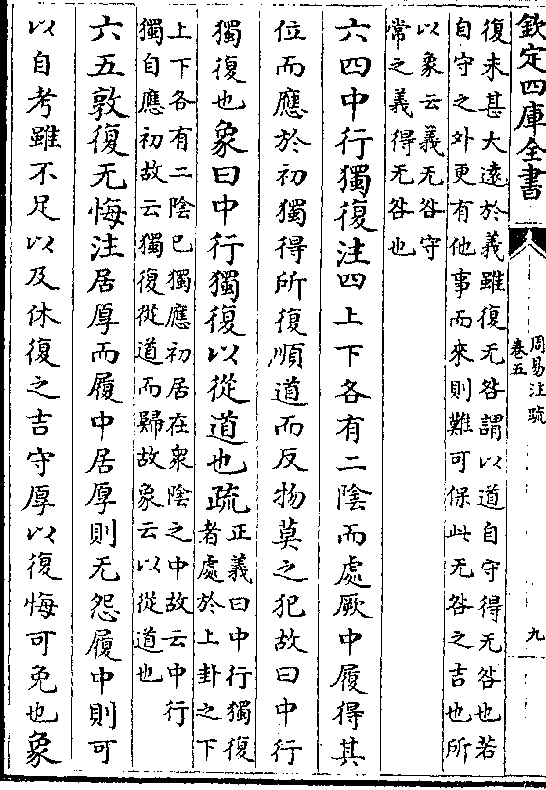 欽定四庫全書
周易注疏
卷五
九
復未甚大遠於義雖復无咎謂以道自守得无咎也若
自守之外更有他事而來則難可保此无咎之吉也所
以象云義无咎守
常之義得无咎也
六四中行獨復注四上下各有二陰而處厥中履得其
位而應於初獨得所復順道而反物莫之犯故曰中行
獨復也象曰中行獨復以從道也疏
正義曰中行獨復
者處於上卦之下
上下各有二陰已獨應初居在衆陰之中故云中行
獨自應初故云獨復從道而歸故象云以從道也
六五敦復无悔注居厚而履中居厚則无怨履中則可
以自考雖不足以及休復之吉守厚以復悔可免也象